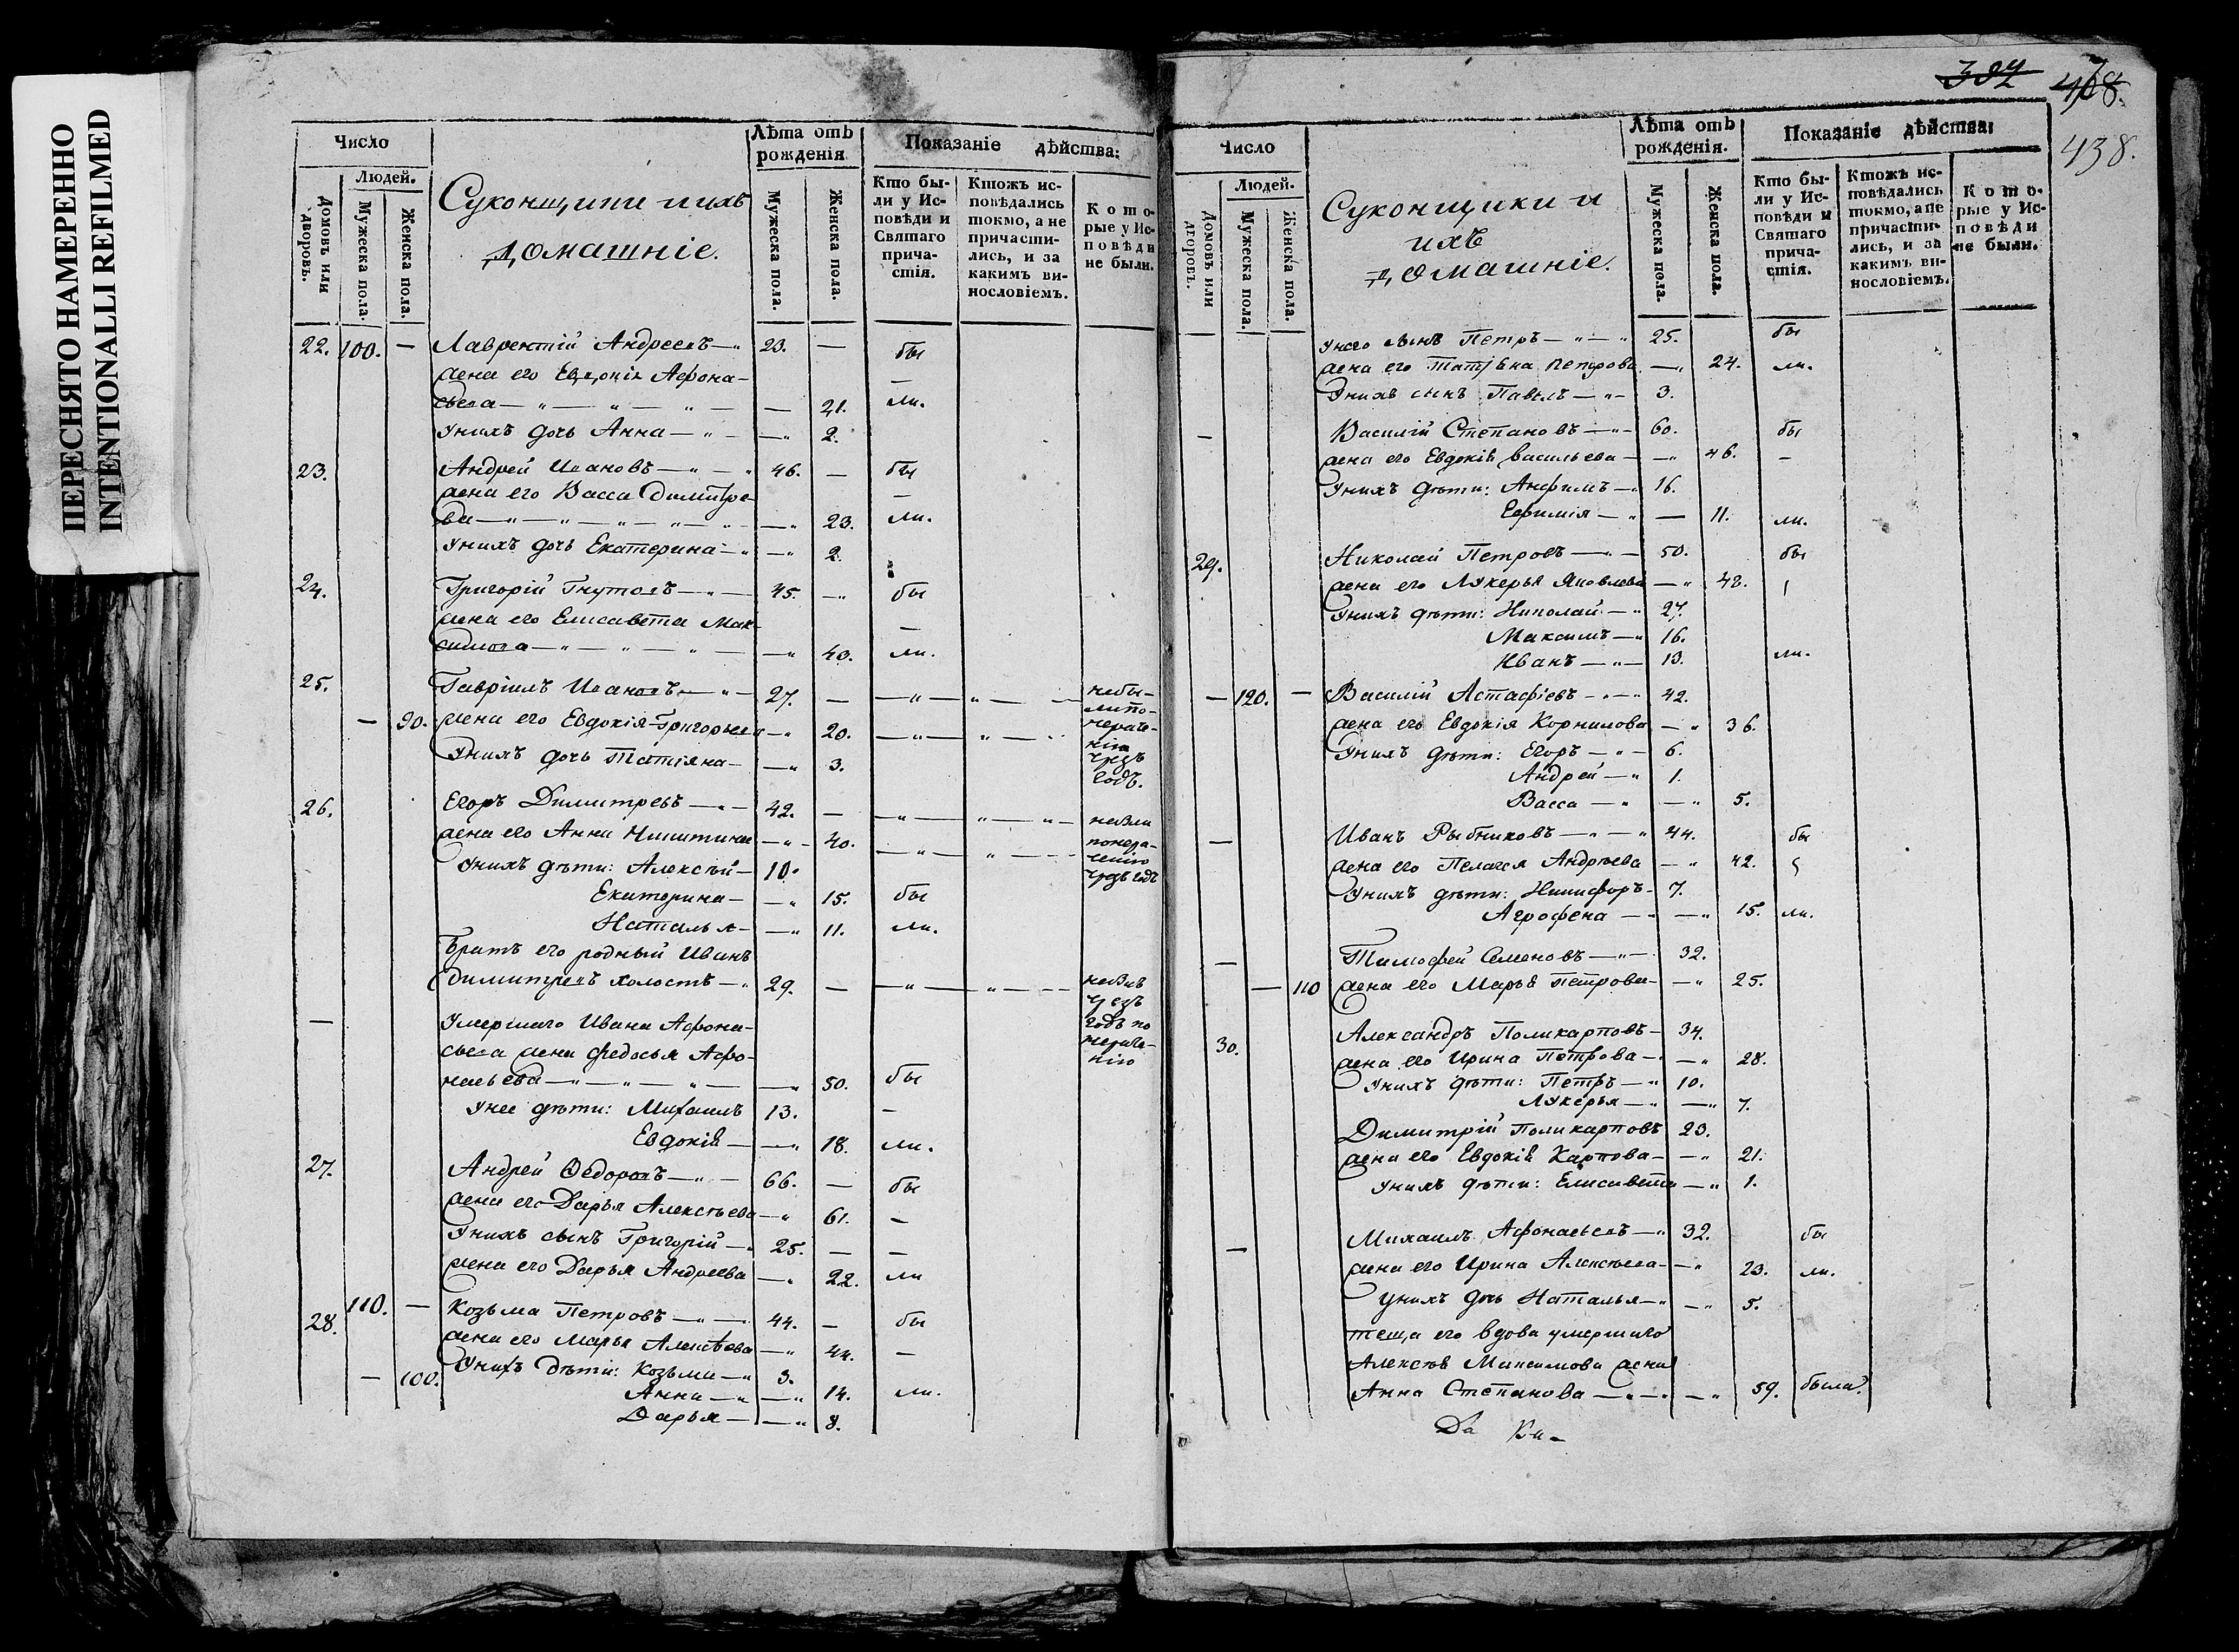 ПЕРЕСНЯТО НАМЕРЕННО
INTENTIONALLI REFILMED
Число
Людей.
Домовъ или дворовъ.
Мужеска пола.
Женска пола.
Суконщики и ихъ
домашніе.
Лѣта отъ рожденія
Мужеска пола.
Женска пола.
Показаніе дѣйства:
Кто бы-
ли у Ис-
повѣди и
Святаго
прича-
стія.
Ктожъ ис-
повѣдались
токмо, а не
причасти-
лись, и за
какимъ ви-
нословіемъ.
Кото-
рые у Ис-
повѣди
не были.
22. 100. — Лаврентій Андреевъ — 23. — бы
жена его Евдокія Афона-
сьева — 21. ли.
У нихъ дочь Анна — 2.
23. Андрей Ивановъ — 46. — бы
жена его Васса Димитре-
ва — 23. ли.
У нихъ дочь Екатерина — 2.
24. Григорій Гнутовъ — 45. — бы
жена его Елисавета Мак-
симова — 43. ли.
25. Гавріилъ Ивановъ — 27. — небы-
ли по-
нераче-
нію
чрезъ
годъ.
— 90. жена его Евдокія Григорьева — 20.
У нихъ дочь Татіяна — 3.
26. Егоръ Димитревъ — 42. —
жена его Анна Никитина — 40.
понера-
ченію
чрезъ годъ
У нихъ дѣти: Алексѣй — 10.
Екатерина — 15. бы
Наталья — 11. ли.
Братъ его родный Иванъ
Димитревъ холостъ — 29. —
чрезъ
годъ по
нераче-
нію
— Умершаго Ивана Афона-
сьева жена Федосья Афо-
насьева — 50. бы
У нее дѣти: Михаилъ 13. —
Евдокія — 18. ли.
27. Андрей Федоровъ — 66. — бы
жена его Дарья Алексѣева — 61. —
У нихъ сынъ Григорій — 25. — —
жена его Дарья Андреева — 22. ли
28. 110. — Козьма Петровъ — 44. — бы
жена его Марья Алексѣева — 44. —
— 100. У нихъ дѣти: Козьма — 3.
Анна — 14. ли.
Дарья — 8.
438.
Число
Людей.
Домовъ или дворовъ.
Мужеска пола.
Женска пола.
Суконщики и
ихъ
домашніе.
Лѣта отъ рожденія.
Мужеска пола.
Женска пола.
Показаніе дѣйства:
Кто бы-
ли у Ис-
повѣди и
Святаго
прича-
стія.
Ктожъ ис-
повѣдались
токмо, а не
причасти-
лись, и за
какимъ ви-
нословіемъ.
Кото-
рые у Ис-
повѣди
не были.
У него сынъ Петръ — 25. бы
жена его Татіяна Петрова — 24. ли.
У нихъ сынъ Павелъ — 3.
— Василій Степановъ — 60. бы
жена его Евдокія Васильева — 46. —
У нихъ дѣти: Анфимъ — 16.
Ефимія — 11. ли.
29. Николай Петровъ — 50. бы
жена его Лукерья Яковлева — 42.
У нихъ дѣти: Николай — 27.
Максимъ — 16.
Иванъ — 13. ли.
— 120. — Василій Астафіевъ — 42.
жена его Евдокія Корнилова — 36.
У нихъ дѣти: Егоръ — 6.
Андрей — 1.
Васса — 5.
— Иванъ Рыбниковъ — 44. бы
жена его Пелагея Андрѣева — 42.
У нихъ дѣти: Никифоръ — 7.
Агрофена — 15. ли.
— Тимофей Семеновъ — 32.
— 110 жена его Марья Петрова — 25.
30. Александръ Поликарповъ — 34.
жена его Ирина Петрова — 28.
У нихъ дѣти: Петръ — 10.
Лукерья — 7.
Димитрій Поликарповъ 23.
жена его Евдокія Карпова — 21.
У нихъ дѣти: Елисавета — 1.
— Михаилъ Афонасьевъ — 32. бы
жена его Ирина Алексѣева — 23. ли.
У нихъ дочь Наталья — 5.
теща его вдова умершаго
Алексѣя Максимова жена
Анна Степанова — 59. была.